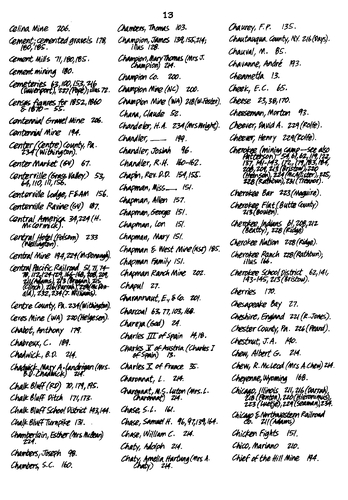 13
Celina Mine 206.
Cement, cemented gravels 178,
180, 185.
Cement Mills 71, 180, 185.
Cement mining 180.
Cemeteries 63, 100, 153, 216
Census figures for 1852, 1860
Centennial Gravel Mine 206.
Centennial Mine 194.
Center (Centre) County, Pa.
234 (Withington).
Center Market (GV) 67.
Centerville (Grass Valley) 53,
Centerville Lodge, F&AM 156.
Centerville Ravine (GV) 87.
Central America 34, 224 (H.
McCormick).
Central Hotel (Folsom) 233
(Wellington).
Central Mine 194, 224 (McDonough).
Central Pacific Railroad
Centre County, Pa. 234 (Withington).
Ceres Mine (WA) 220 (Helgesen).
Chabot, Anthony 179.
Chabreux, C. 189.
Chadwick, B.D. 214.
Chadwick, Mary A. Landrigan (Mrs.
B.D. Chadwick) 214.
Chalk Bluff (RD) 70, 179, 195.
Chalk Bluff Ditch 171, 173.
Chalk Bluff School District 143, 144.
Chalk Bluff Turnpike 131.
Chamberlain, Esther (Mrs. McBean)
224.
Chambers, Joseph 98.
Chambers, S.C. 160.
Chambers, Thomas 103.
Champion, James 139, 155, 214;
illus 128.
Champion, Mary Thomas (Mrs. J.
Champion) 214.
Champion Co. 200.
Champion Mine (NC) 200.
Champion Mine (WA) 218 (W. Foster).
Chana, Claude 52.
Chandeler, H.A. 234 (Mrs Wright).
Chandler, 199.
Chandler, Josiah 96.
Chandler, R.H. 160-162.
Chapin, Rev. D.D. 154, 155.
Chapman, Miss 151.
Chapman, Allen 157.
Chapman, George 151.
Chapman, Lon 151.
Chapman, Mary 151.
Chapman & West Mine (NSJ) 185.
Chapman Family 151.
Chapman Ranch Mine 202.
Chapul 27.
Charannaut, E., & Co. 201.
Charcoal 63, 77, 103, 168.
Chareya (God) 24.
Charles III of Spain 14, 18.
Charles V of Austria (Charles I
of Spain) 13.
Charles X of France 35.
Charonnat, L. 214.
Charonnat, M.S. Luton (Mrs. L.
Charonnat) 214.
Chase, S.L. 161.
Chase, Samuel H. 96, 97, 139, 164.
Chase, William C. 214.
Chaty, Adolph 214.
Chaty, Amelia Hartung (Mrs. A.
Chaty) 214.
Chaurey, F.P. 135.
Chautauqua County, NY. 216 (Fays).
Chauval, M. 85.
Chavanne, André 193.
Cheenmetta 13.
Cheek, E.C. 65.
Cheese 23, 38, 170.
Cheeseman, Morton 93.
Cheever, David A. 229 (Rolfe).
Cheever, Henry 229 (Rolfe).
Cherokee (mining camp - see also
Patterson)
Cherokee Bar 223 (Maguire).
Cherokee Flat (Butte County)
213 (Bowen).
Cherokee Indians 61, 208, 212
(Beatty), 228 (Ridge).
Cherokee Nation 228 (Ridge).
Cherokee Ranch 228 (Rathbun);
illus 166.
Cherokee School District 62, 141,
143-145, 213 (Bristow).
Cherries 170.
Chesapeake Bay 27.
Cheshire, England 221 (R. Jones).
Chester County, Pa. 226 (Peard).
Chestnut, J.A. 140.
Chew, Albert G. 214.
Chew, R. McLeod (Mrs. A Chew) 214.
Cheyenne, Wyoming 168.
Chicago, Illinois 211, 216 (Darrah),
Chicago & Northwestern Railroad
Co. 211 (Adams)
Chicken Fights 157.
Chico, Mariano 210.
Chief of the Hill Mine 194.